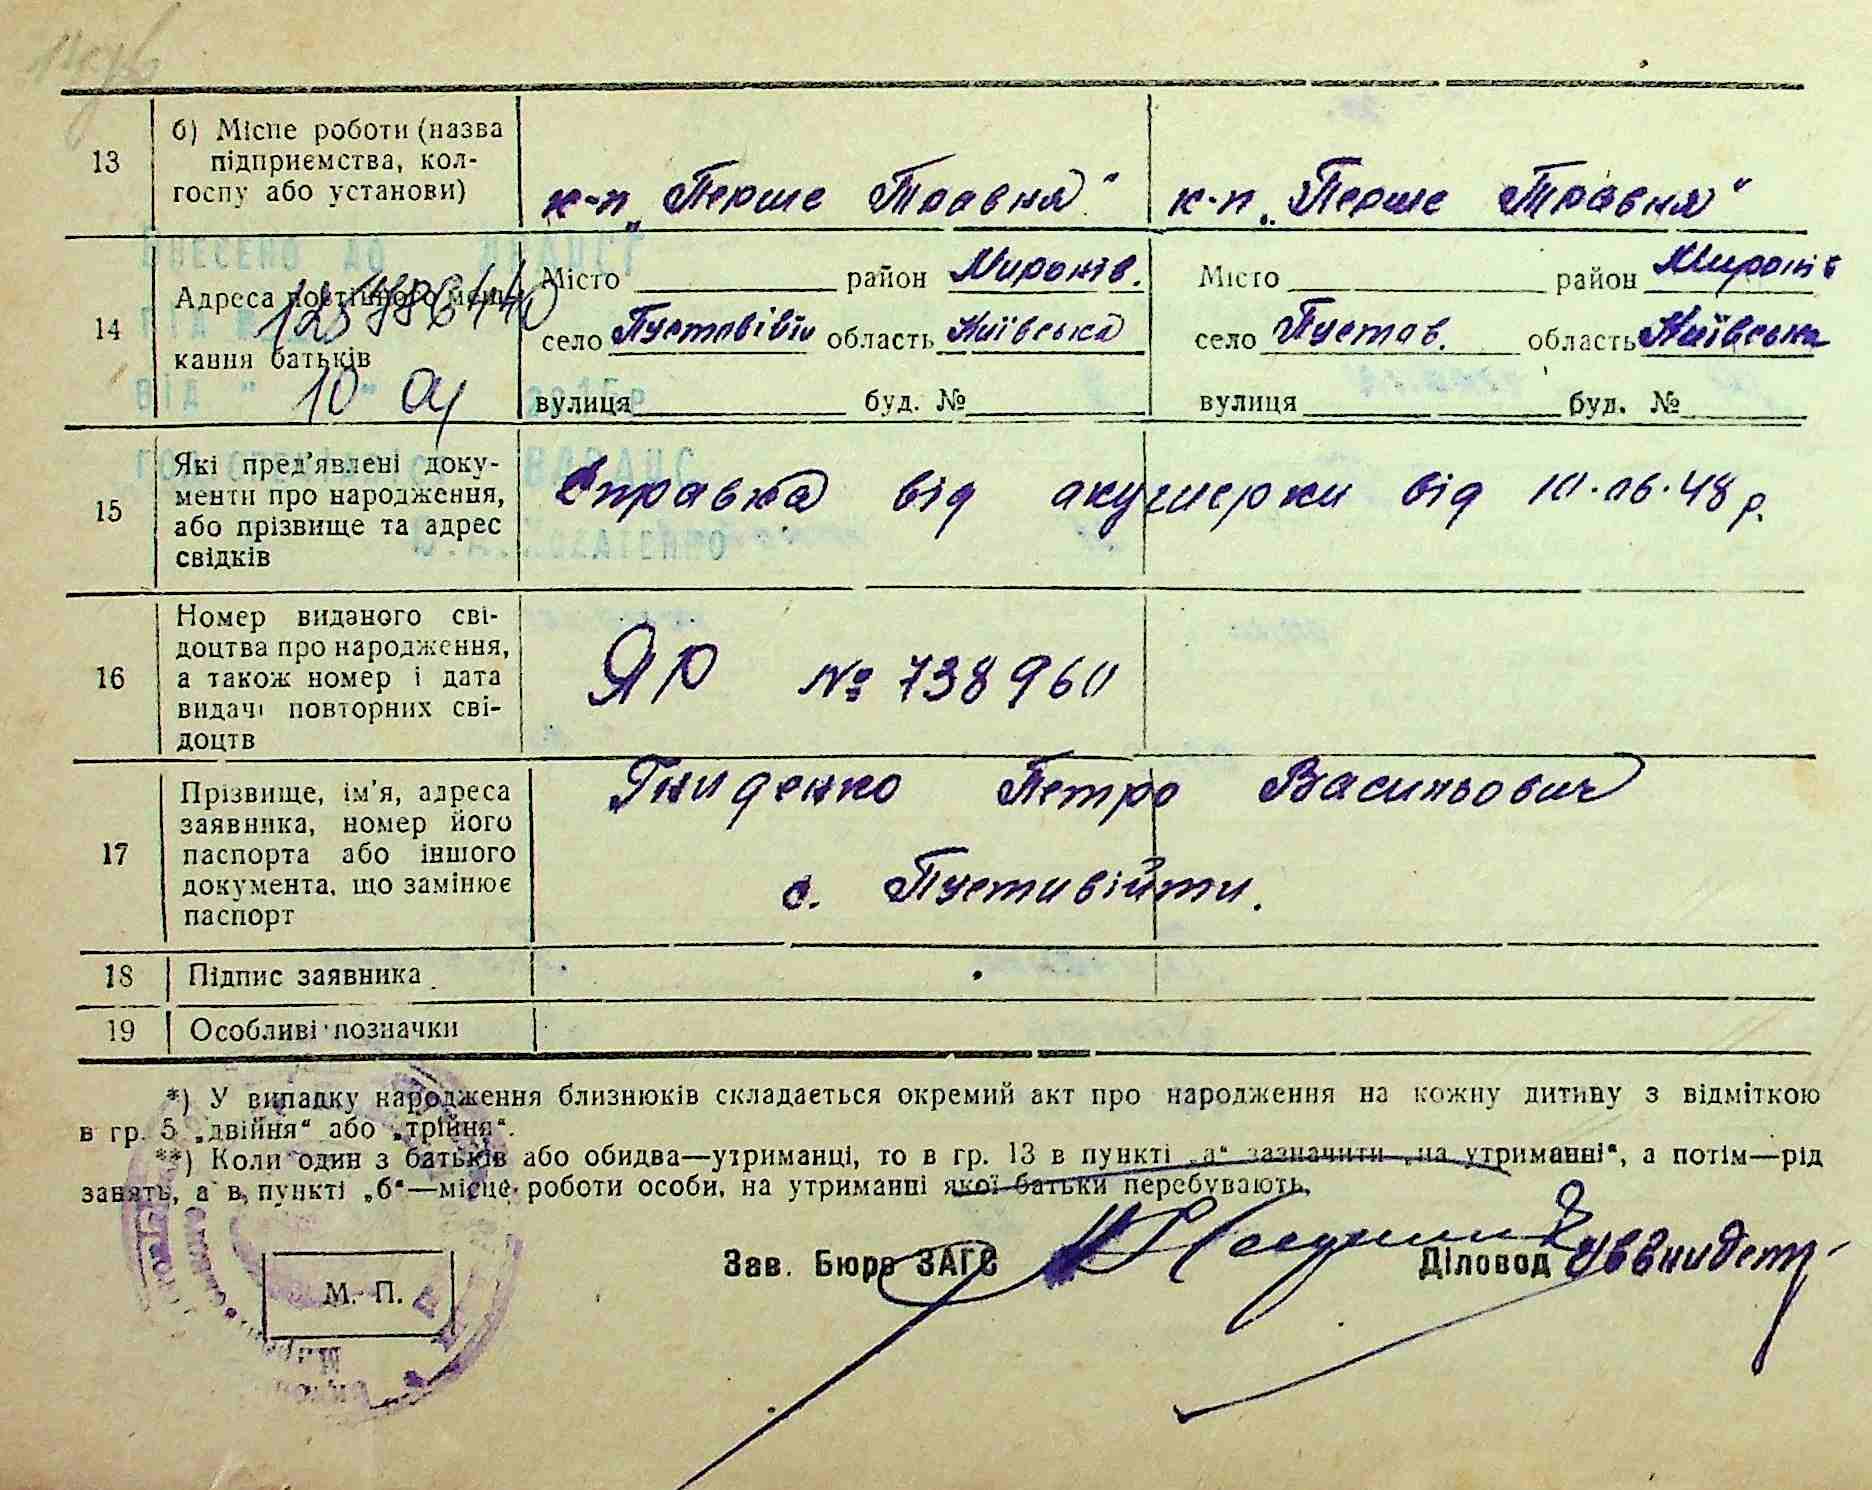 13 б) Місце роботи (назва
підприємства, кол-
госпу або установи)
к-п „Перше Травня" к-п „Перше Травня"
ВНЕСЕНО ДО ДРАЦСГ
14 Адреса постійного меш-
кання батьків
12598640
ВІД " 10 " 04 2015 р
Місто район Миронів. Місто район Миронів
село Пустовійти область Київська село Пустов. область Київська
вулиця буд. № вулиця буд. №
15 Які пред'явлені доку-
менти про народження,
або прізвище та адрес
свідків
Справка від акушерки від 10.06.48 р.
16 Номер виданого сві-
доцтва про народження,
а також номер і дата
видачі повторних сві-
доцтв
ЯР № 738960
17 Прізвище, ім'я, адреса
заявника, номер його
паспорта або іншого
документа, що замінює
паспорт
Гниденко Петро Васильович
с. Пустивійти.
18 Підпис заявника
19 Особливі позначки
*) У випадку народження близнюків складається окремий акт про народження на кожну дитину з відміткою
в гр. 5 „двійня" або „трійня".
**) Коли один з батьків або обидва—утриманці, то в гр. 13 в пункті „а" зазначити „на утриманні", а потім—рід
занять, а в пункті „б"—місце роботи особи, на утриманні якої батьки перебувають.
Зав. Бюро ЗАГС Діловод
М. П.